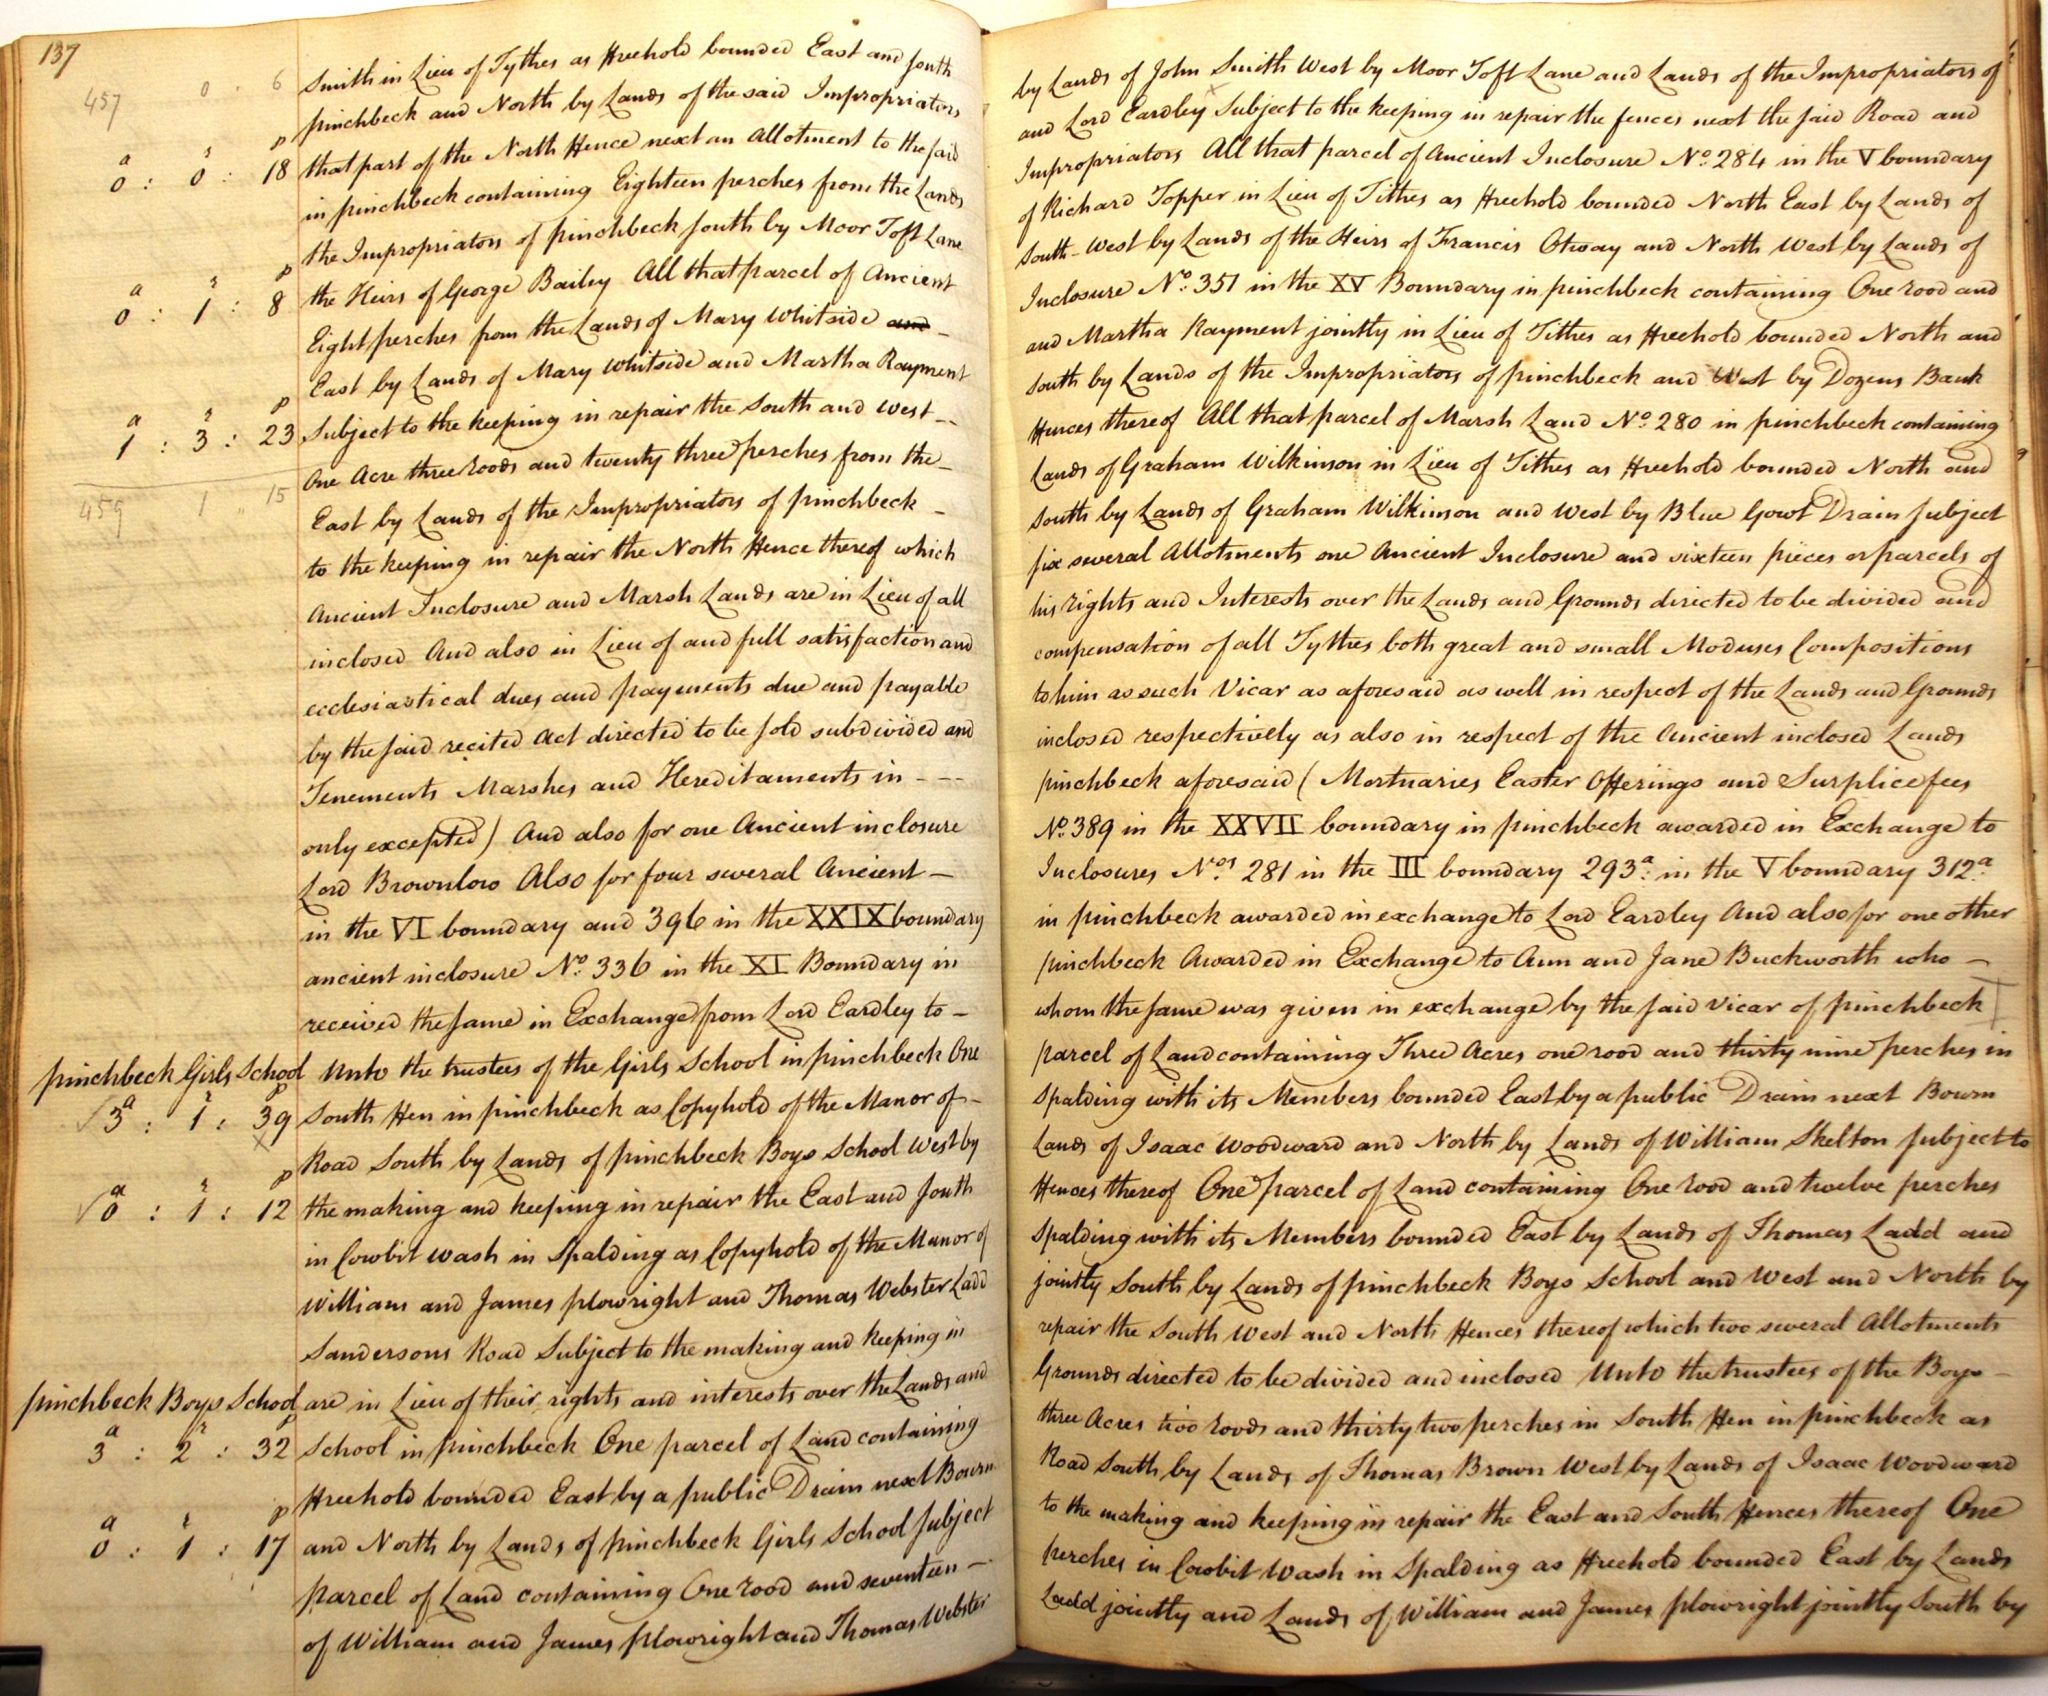 137
457 0 6
Smith in Lieu of Tythes as Freehold bounded East and South by Lands of John Smith West by Moor Toft Lane and Lands of the Impropriators of
pinchbeck and North by Lands of the said Impropriators and Lord Eardley Subject to the keeping in repair the fences next the said Road and
a r p
0 : 0 : 18 that part of the North Fence next an Allotment to the said Impropriators All that parcel of Ancient Inclosure No. 284 in the V boundary
in pinchbeck containing Eighteen perches from the Lands of Richard Topper in Lieu of Tithes as Freehold bounded North East by Lands of
the Impropriators of pinchbeck South by Moor Toft Lane South-West by Lands of the Heirs of Francis Otway and North West by Lands of
a r p
0 : 1 : 8 the Heirs of George Bailey All that parcel of Ancient Inclosure No. 351 in the XV Boundary in pinchbeck containing One rood and
Eight perches from the Lands of Mary Whitside and - and Martha Rayment jointly in Lieu of Tithes as Freehold bounded North and
East by Lands of Mary Whitside and Martha Rayment South by Lands of the Impropriators of pinchbeck and West by Dozens Bank
a r p
1 : 3 : 23 Subject to the keeping in repair the South and West -- Fences thereof All that parcel of Marsh Land No. 280 in pinchbeck containing
One Acre three roods and twenty three perches from the - Lands of Graham Wilkinson in Lieu of Tithes as Freehold bounded North and
459 1 15
East by Lands of the Impropriators of pinchbeck - South by Lands of Graham Wilkinson and West by Blue Gowt Drain Subject
to the keeping in repair the North Fence thereof which six several Allotments one Ancient Inclosure and sixteen pieces or parcels of
Ancient Inclosure and Marsh Lands are in Lieu of all his rights and Interests over the Lands and Grounds directed to be divided and
inclosed And also in Lieu of and full satisfaction and compensation of all Tythes both great and small Moduses Compositions
ecclesiastical dues and payments due and payable to him as such Vicar as aforesaid as well in respect of the Lands and Grounds
by the said recited Act directed to be sold subdivided and inclosed respectively as also in respect of the Ancient inclosed Lands
Tenements Marshes and Hereditaments in --- pinchbeck aforesaid (Mortuaries Easter Offerings and Surplice fees
only excepted) And also for one Ancient inclosure No. 389 in the XXVII boundary in pinchbeck awarded in Exchange to
Lord Brownlow Also for four several Ancient - Inclosures Nos. 281 in the III boundary 293a. in the V boundary 312a.
in the VI boundary and 396 in the XXIX boundary in pinchbeck awarded in exchange to Lord Eardley And also for one other
ancient inclosure No. 336 in the XI Boundary in pinchbeck Awarded in Exchange to Ann and Jane Buckworth who -
received the same in Exchange from Lord Eardley to - whom the same was given in exchange by the said Vicar of pinchbeck
pinchbeck Girls School Unto the trustees of the Girls School in pinchbeck One parcel of Land containing Three Acres one rood and thirty nine perches in
a r p
3 : 1 : 39 South Fen in pinchbeck as Copyhold of the Manor of - Spalding with its Members bounded East by a public Drain next Bourn
Road South by Lands of pinchbeck Boys School West by Lands of Isaac Woodward and North by Lands of William Skelton subject to
a r p
0 : 1 : 12 the making and keeping in repair the East and South Fences thereof One parcel of Land containing One rood and twelve perches
in Cowbit Wash in Spalding as Copyhold of the Manor of Spalding with its Members bounded East by Lands of Thomas Ladd and
William and James plowright and Thomas Webster Ladd jointly South by Lands of pinchbeck Boys School and West and North by
Sandersons Road Subject to the making and keeping in repair the South West and North Fences thereof which two several Allotments
are in Lieu of their rights and interests over the Lands and Grounds directed to be divided and inclosed Unto the trustees of the Boys -
pinchbeck Boys School
a r p
3 : 2 : 32 School in pinchbeck One parcel of Land containing three Acres two roods and thirty two perches in South Fen in pinchbeck as
Freehold bounded East by a public Drain next Bourn Road South by Lands of Thomas Brown West by Lands of Isaac Woodward
a r p
0 : 1 : 17 and North by Lands of pinchbeck Girls School Subject to the making and keeping in repair the East and South Fences thereof One
parcel of Land containing One rood and seventeen - perches in Cowbit Wash in Spalding as Freehold bounded East by Lands
of William and James plowright and Thomas Webster Ladd jointly and Lands of William and James plowright jointly South by